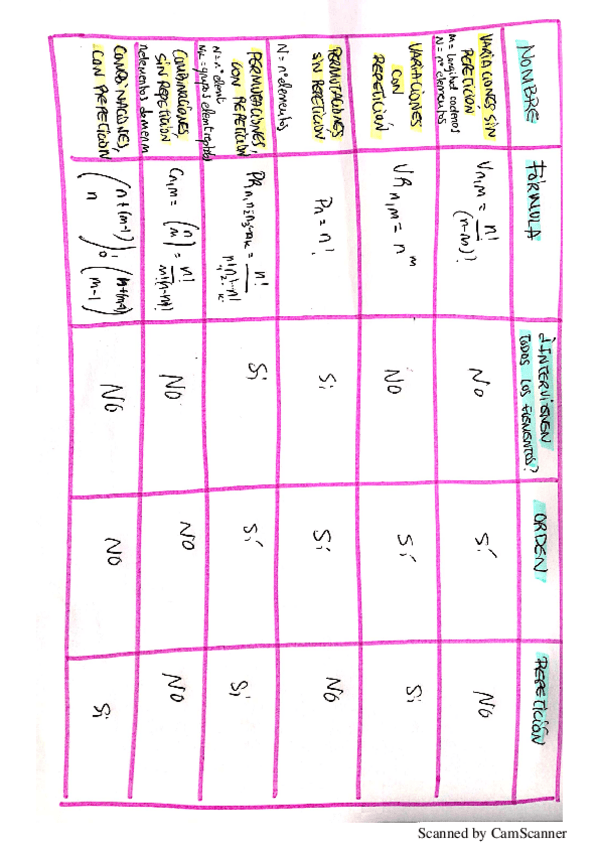 NOMBRE
FÓRMULA
¿INTERVIENEN
TODOS LOS ELEMENTOS?
ORDEN
REPETICIÓN
VARIACIONES SIN
REPETICION
M = Longitud cadenas
N = nº elementos
Vn,m = n! / (n-m)!
NO
Sí
NO
VARIACIONES
CON
REPETICIÓN
VRn,m = n^m
NO
Sí
Sí
PERMUTACIONES
SIN REPETICIÓN
N = nº elementos
Pn = n!
Sí
Sí
NO
PERMUTACIONES,
CON REPETICIÓN
N = nº element
= grupos elemt repetidos
= n! / n1! n2! ... nk!
Sí
Sí
Sí
COMBINACIONES,
SIN REPETICIÓN
n elementos de m en m
Cn,m = (n m) = n! / m!(n-m)!
NO
NO
NO
COMBINACIONES,
CON REPETICIÓN
(n+(m-1) n) ó (n+(m-1) m-1)
NO
NO
Sí
Scanned by CamScanner